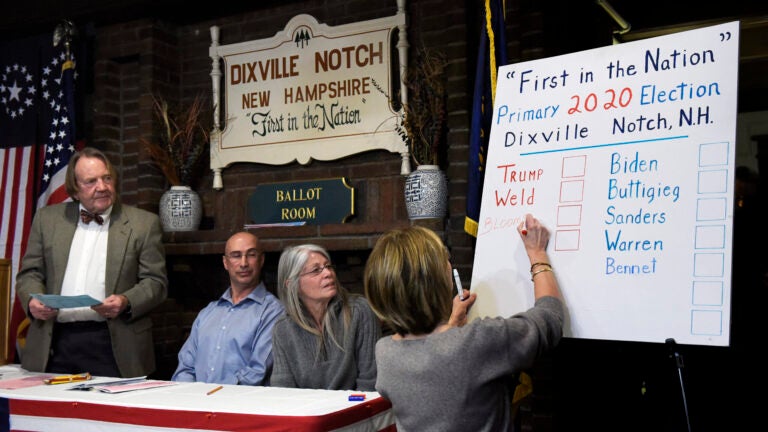 DIXVILLE NOTCH
NEW HAMPSHIRE
"First in the Nation"
BALLOT
ROOM
"First in the Nation"
Primary 2020 Election
Dixville Notch, N.H.
TRUMP
Weld
Bloom
Biden
Buttigieg
Sanders
Warren
Bennet